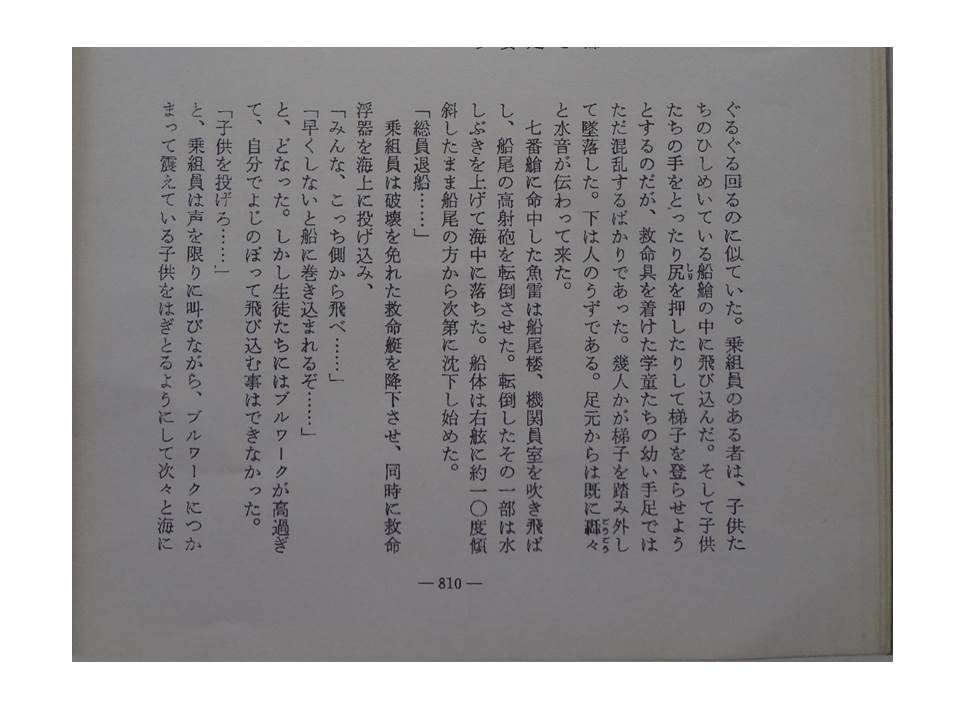 ぐるぐる回るのに似ていた。乗組員のある者は、子供た
ちのひしめいている船艙の中に飛び込んだ。そして子供
たちの手をとったり尻を押したりして梯子を登らせよう
とするのだが、救命具を着けた学童たちの幼い手足では
ただ混乱するばかりであった。幾人かが梯子を踏み外し
て墜落した。下は人のうずである。足元からは既に轟々
と水音が伝わって来た。
七番艙に命中した魚雷は船尾楼、機関員室を吹き飛ば
し、船尾の高射砲を転倒させた。転倒したその一部は水
しぶきを上げて海中に落ちた。船体は右舷に約一〇度傾
斜したまま船尾の方から次第に沈下し始めた。
「総員退船……」
乗組員は破壊を免れた救命艇を降下させ、同時に救命
浮器を海上に投げ込み、
「みんな、こっち側から飛べ……」
「早くしないと船に巻き込まれるぞ……」
と、どなった。しかし生徒たちにはブルワークが高過ぎ
て、自分でよじのぼって飛び込む事はできなかった。
「子供を投げろ……」
と、乗組員は声を限りに叫びながら、ブルワークにつか
まって震えている子供をはぎとるようにして次々と海に
— 810 —